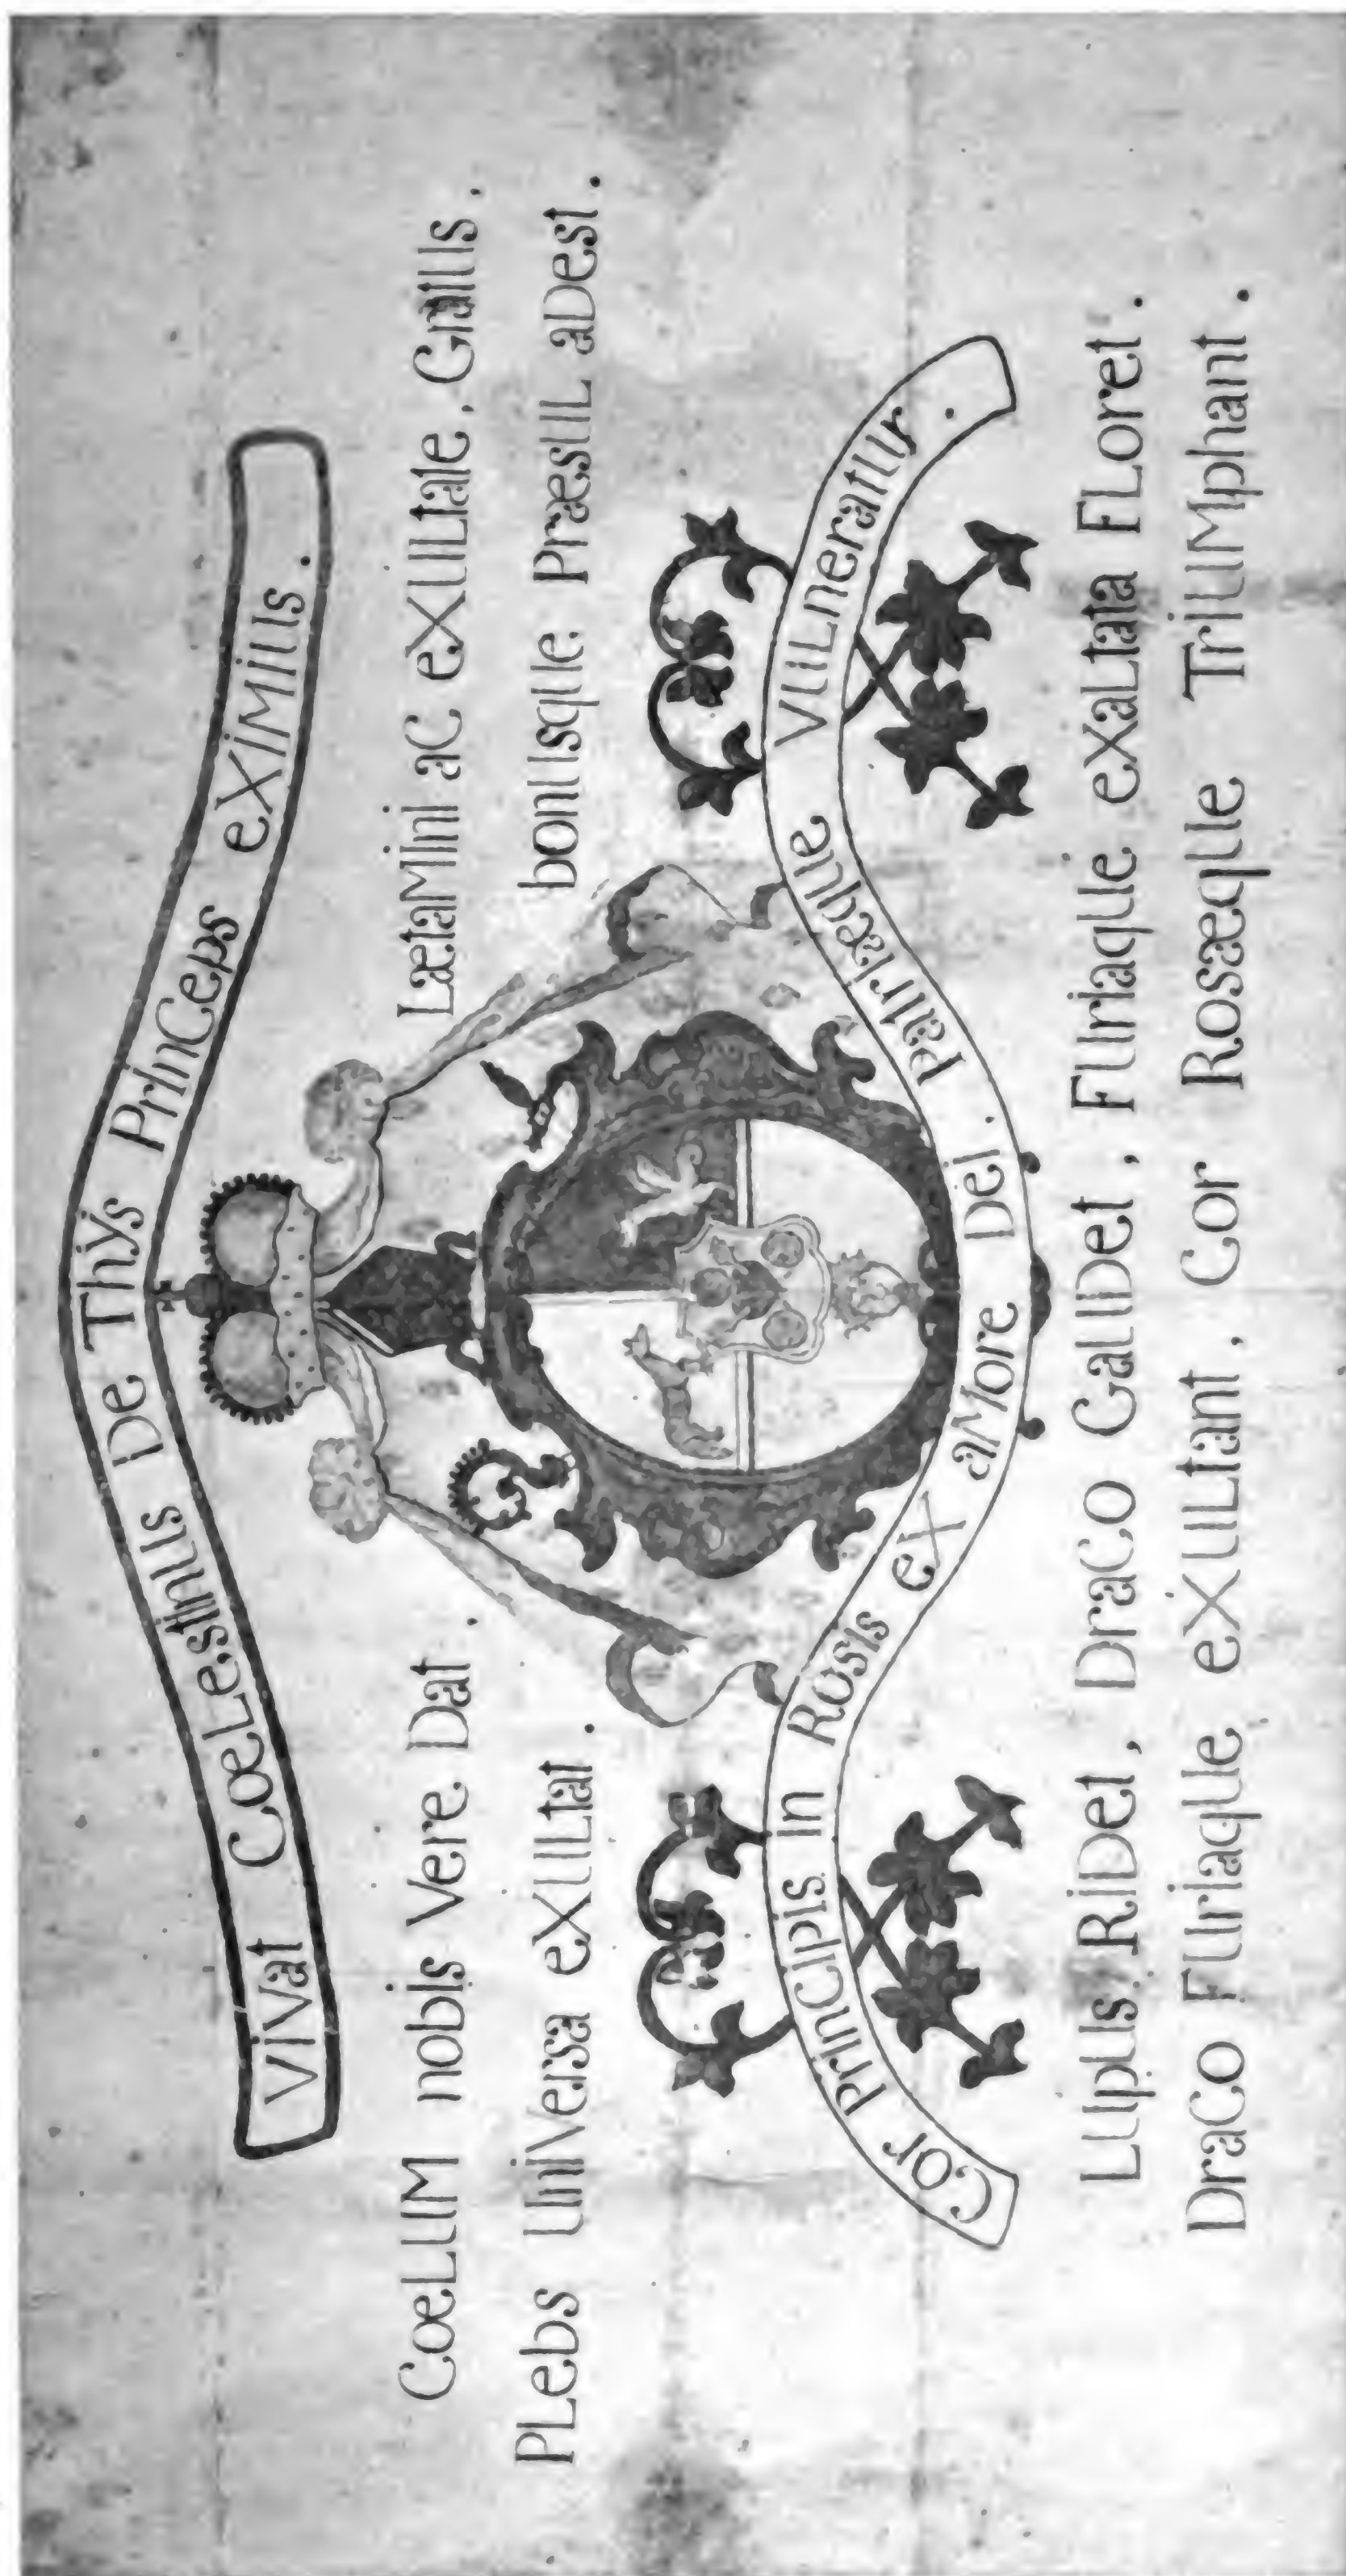 VIVat CœLestInUs De Thÿs PrInCeps eXIMIUs .
CœLUM nobIs Vere Dat .
PLebs UnIVersa eXULtat .
LætaMInI aC eXULtate , GratUs .
bonUsqUe PræsUL aDest .
Cor PrInCIpIs In RosIs eX aMore DeI . PatrIæqUe VULneratUr .
LUpUs RIDet , DraCo GaUDet , FUrIaqUe eXaLtata FLoret .
DraCo FUrIaqUe eXULtant , Cor RosæqUe TrIUMphant .